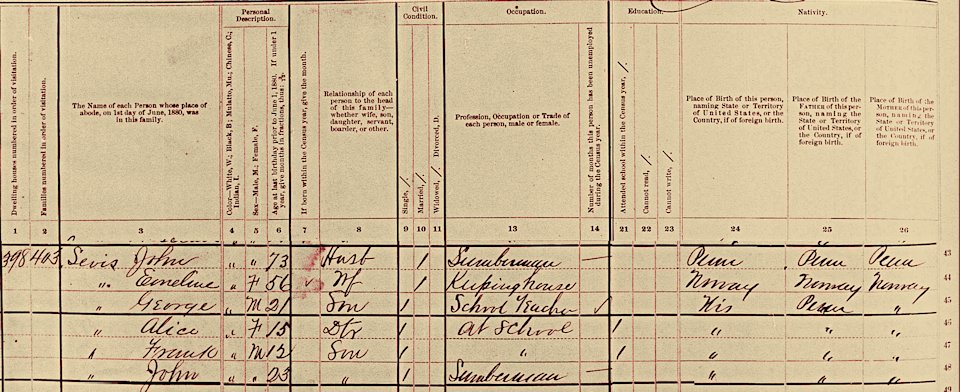 Personal Description.
Civil Condition.
Occupation.
Education.
Nativity.
Dwelling houses numbered in order of visitation.
Families numbered in order of visitation.
The Name of each Person whose place of abode, on 1st day of June, 1880, was in this family.
Color—White, W.; Black, B.; Mulatto, Mu.; Chinese, C.; Indian, I.
Sex—Male, M.; Female, F.
Age at last birthday prior to June 1, 1880. If under 1 year, give months in fractions, thus:
If born within the Census year, give the month.
Relationship of each person to the head of this family—whether wife, son, daughter, servant, boarder, or other.
Single, /.
Married, /.
Widowed, /. Divorced, D.
Profession, Occupation or Trade of each person, male or female.
Number of months this person has been unemployed during the Census year.
Attended school within the Census year, /.
Cannot read, /.
Cannot write, /.
Place of Birth of this person, naming State or Territory of United States, or the Country, if of foreign birth.
Place of Birth of the FATHER of this person, naming the State or Territory of United States, or the Country, if of foreign birth.
Place of Birth of the MOTHER of this person, naming the State or Territory of United States, or the Country, if of foreign birth.
1 2 3 4 5 6 7 8 9 10 11 13 14 21 22 23 24 25 26
398 403 Sevis John " " 73 Husb / Lumberman — Penn Penn Penn 43
" Emeline " F 56 Wf / Keeping house Norway Norway Norway 44
" George " M 21 Son / School Teacher Wis Penn " 45
" Alice " F 15 Dtr / At School / " " " 46
" Frank " M 12 Son / " / " " " 47
" John " " 23 " / Lumberman — " " " 48
49